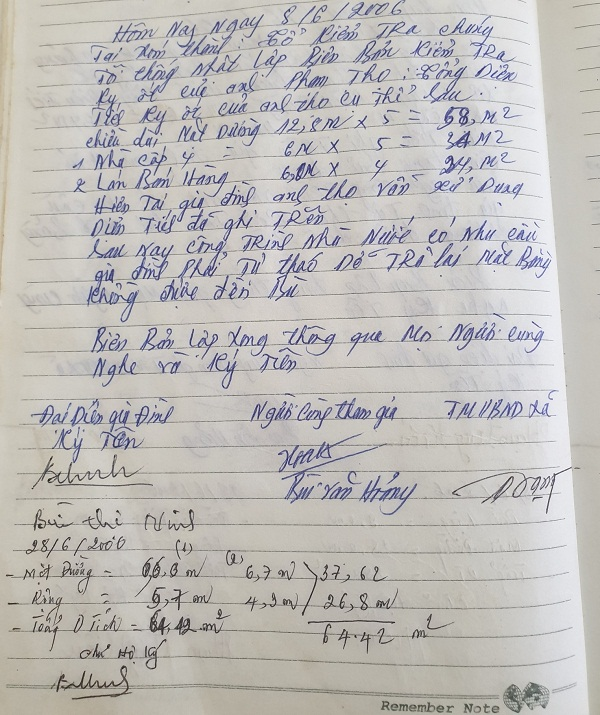 Hôm Nay Ngày 8/6/2006
Tại xóm thành: Tổ Kiểm Tra chúng
Tôi thống Nhất Lập Biên Bản Kiểm Tra
Ky ốt của anh Phạm Tho; Tổng Diên
Tích Ky ốt của anh tho cụ thể Sau.
chiều dài, Mặt Đường 12,8m x 5 = 58, m2
1 Nhà cấp 4 = 6m x 5 = 34 M2
2 Lán Bán Hàng 6,0m x 4 24, m2
Hiên Tại gia đình anh tho vẫn xử Dụng
Diên Tích đã ghi Trên
Sau Nay công Trình Nhà Nước có nhu cầu
gia đình Phải Tự tháo Dở Trả lại Mặt Bằng
không được đền Bù
Biên Bản Lập xong thông qua Mọi Người cùng
Nghe và Ký Tên
Đại Diên gia Đình Người cùng tham gia TM UBND xã
Ký Tên
Bùi Văn Hưởng
Bùi thị Ninh
28/6/2006
(1) (2)
- Mặt Đường = 66,3 m 6,7 m 37,62
- Rộng = 5,7 m 4,2m 26,8 m
- Tổng D Tích = 64,42 m2 64.42 m2
chủ Hộ ký
Remember Note